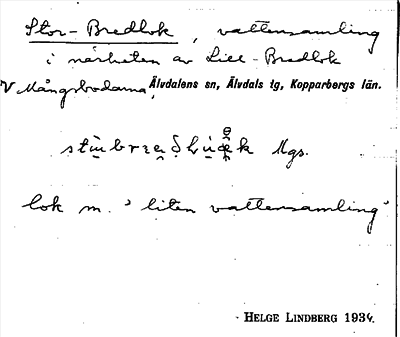 Stor-Bredlok, vattensamling
i närheten av Lill-Bredlok
V Mångsbodarna, Älvdalens sn, Älvdals tg, Kopparbergs län.
Mgs.
lok m. 'liten vattensamling'
HELGE LINDBERG 1934.